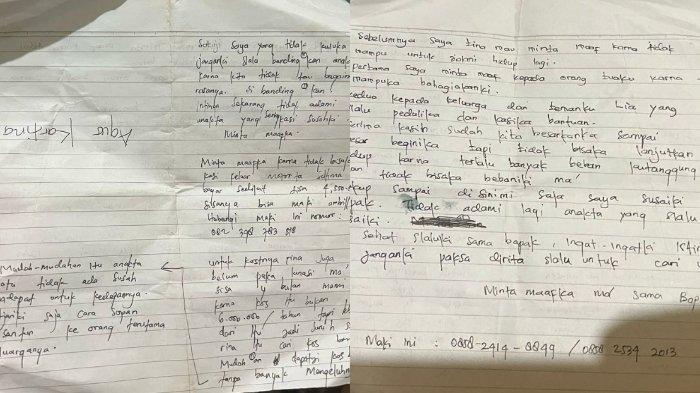 Sekiji saya yang tidak kusuka
janganki Sala banding kan anak
karna kita tidak tau bagaim
rasanya. di banding kan!
intinya sekarang tidak adami
anakta yang sengkasi Susahki.
Minta maafka.
Agus
Kartina
Minta maafka karna tidak bisaka
kasi keluar motorta selima
bayar
sisanya bisa maki ambil
Hubungi Maki Ini nomor:
082 348 783 518
Mudah-mudahan Itu anakta
satu tidak ada Susah
nadapat untuk kedepannya.
ajariki saja Cara Sopan
Santun ke orang terutama
keluarganya.
untuk kostnya rina juga
belum paka lunasi ma'
sisa 4 bulan
karna kos itu bukan
6.000.000 / tahun tapi
dari Itu jadi
rina Itu cari kos
Mudah an dapatji kos
tanpa banyak Mengeluh
Sebelumnya saya tina mau minta maaf karna tidak
mampu untuk hidup lagi.
pertama saya minta maaf kepada orang tuaku karna
mampuka bahagiakanki.
kedua kepada keluarga dan temanku Lia yang
slalu pedulika dan kasika bantuan.
terima kasih sudah kita besarkanka sampai
besar beginika tapi tidak bisaka lanjutkan
hidup karna terlalu banyak beban kutanggung
dan tidak bisaka bebaniki ma'
cukup sampai di sinimi saja saya susaiki
pak. Tidak adami lagi anakta yang slalu
saiki.
sehat slaluki sama bapak, ingat-ingatki Istir
janganki paksa dirita slalu untuk cari
Minta maafka ma' sama Bap
Maki ini : 0858-2414-0849 / 0858 2534 2013